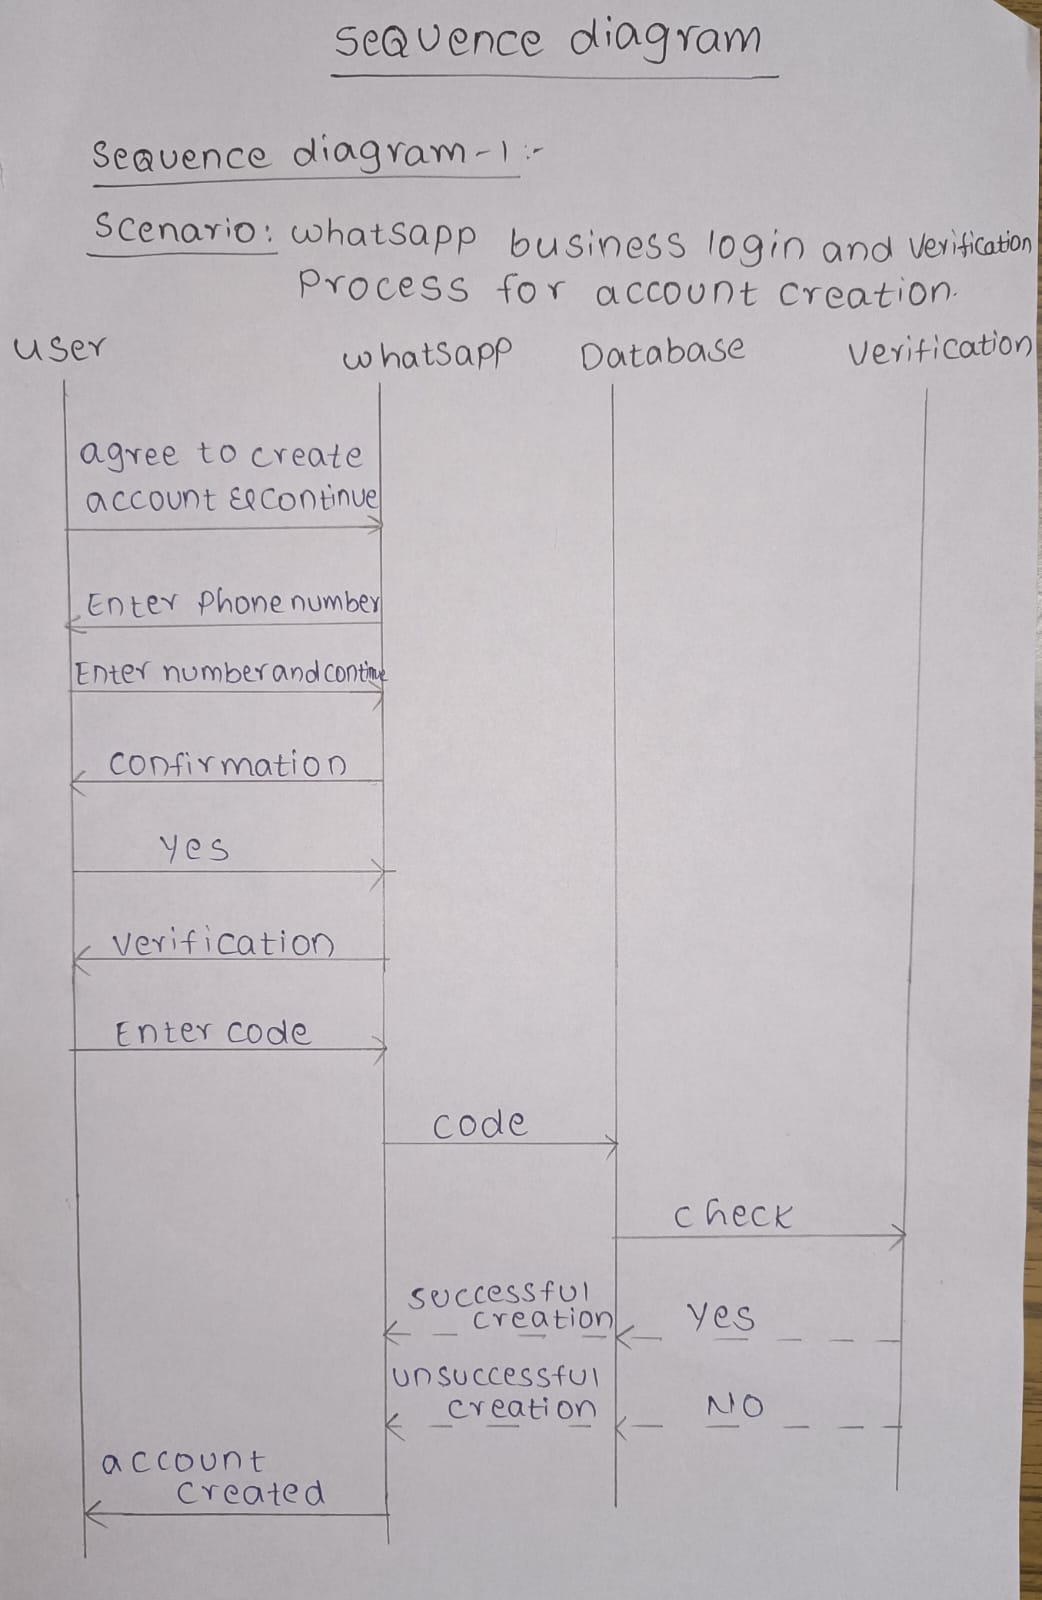 sequence diagram
sequence diagram-1:-
Scenario: whatsapp business login and verification
Process for account creation.
user whatsapp Database verification
agree to create
account & continue
Enter Phone number
Enter number and continue
confirmation
yes
verification
Enter code
code
check
successful
creation yes
unsuccessful
creation NO
account
created